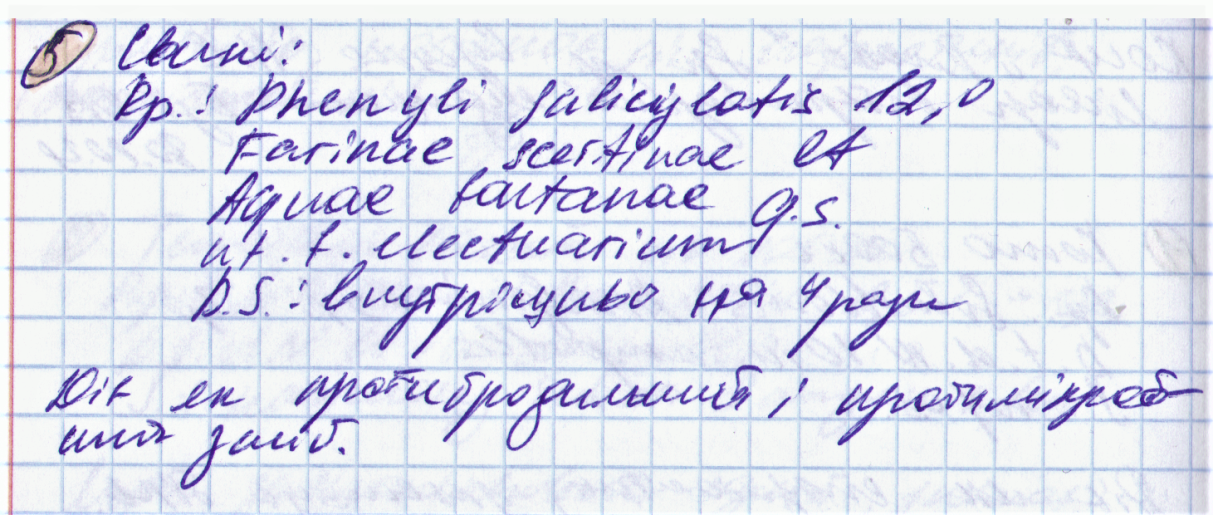 5 Свині:
Rp.: Phenyli salicylatis 12,0
Farinae secalinae et
Aquae fontanae q.s.
ut. f. electuarium
D.S.: Внутрішньо на 4 рази
Діє як протибродильний і протимікроб-
ний засіб.